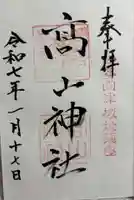 奉拝
髙山神社
令和七年一月十七日